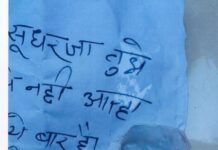 सूधरजा तुझे
नही आता
बार है